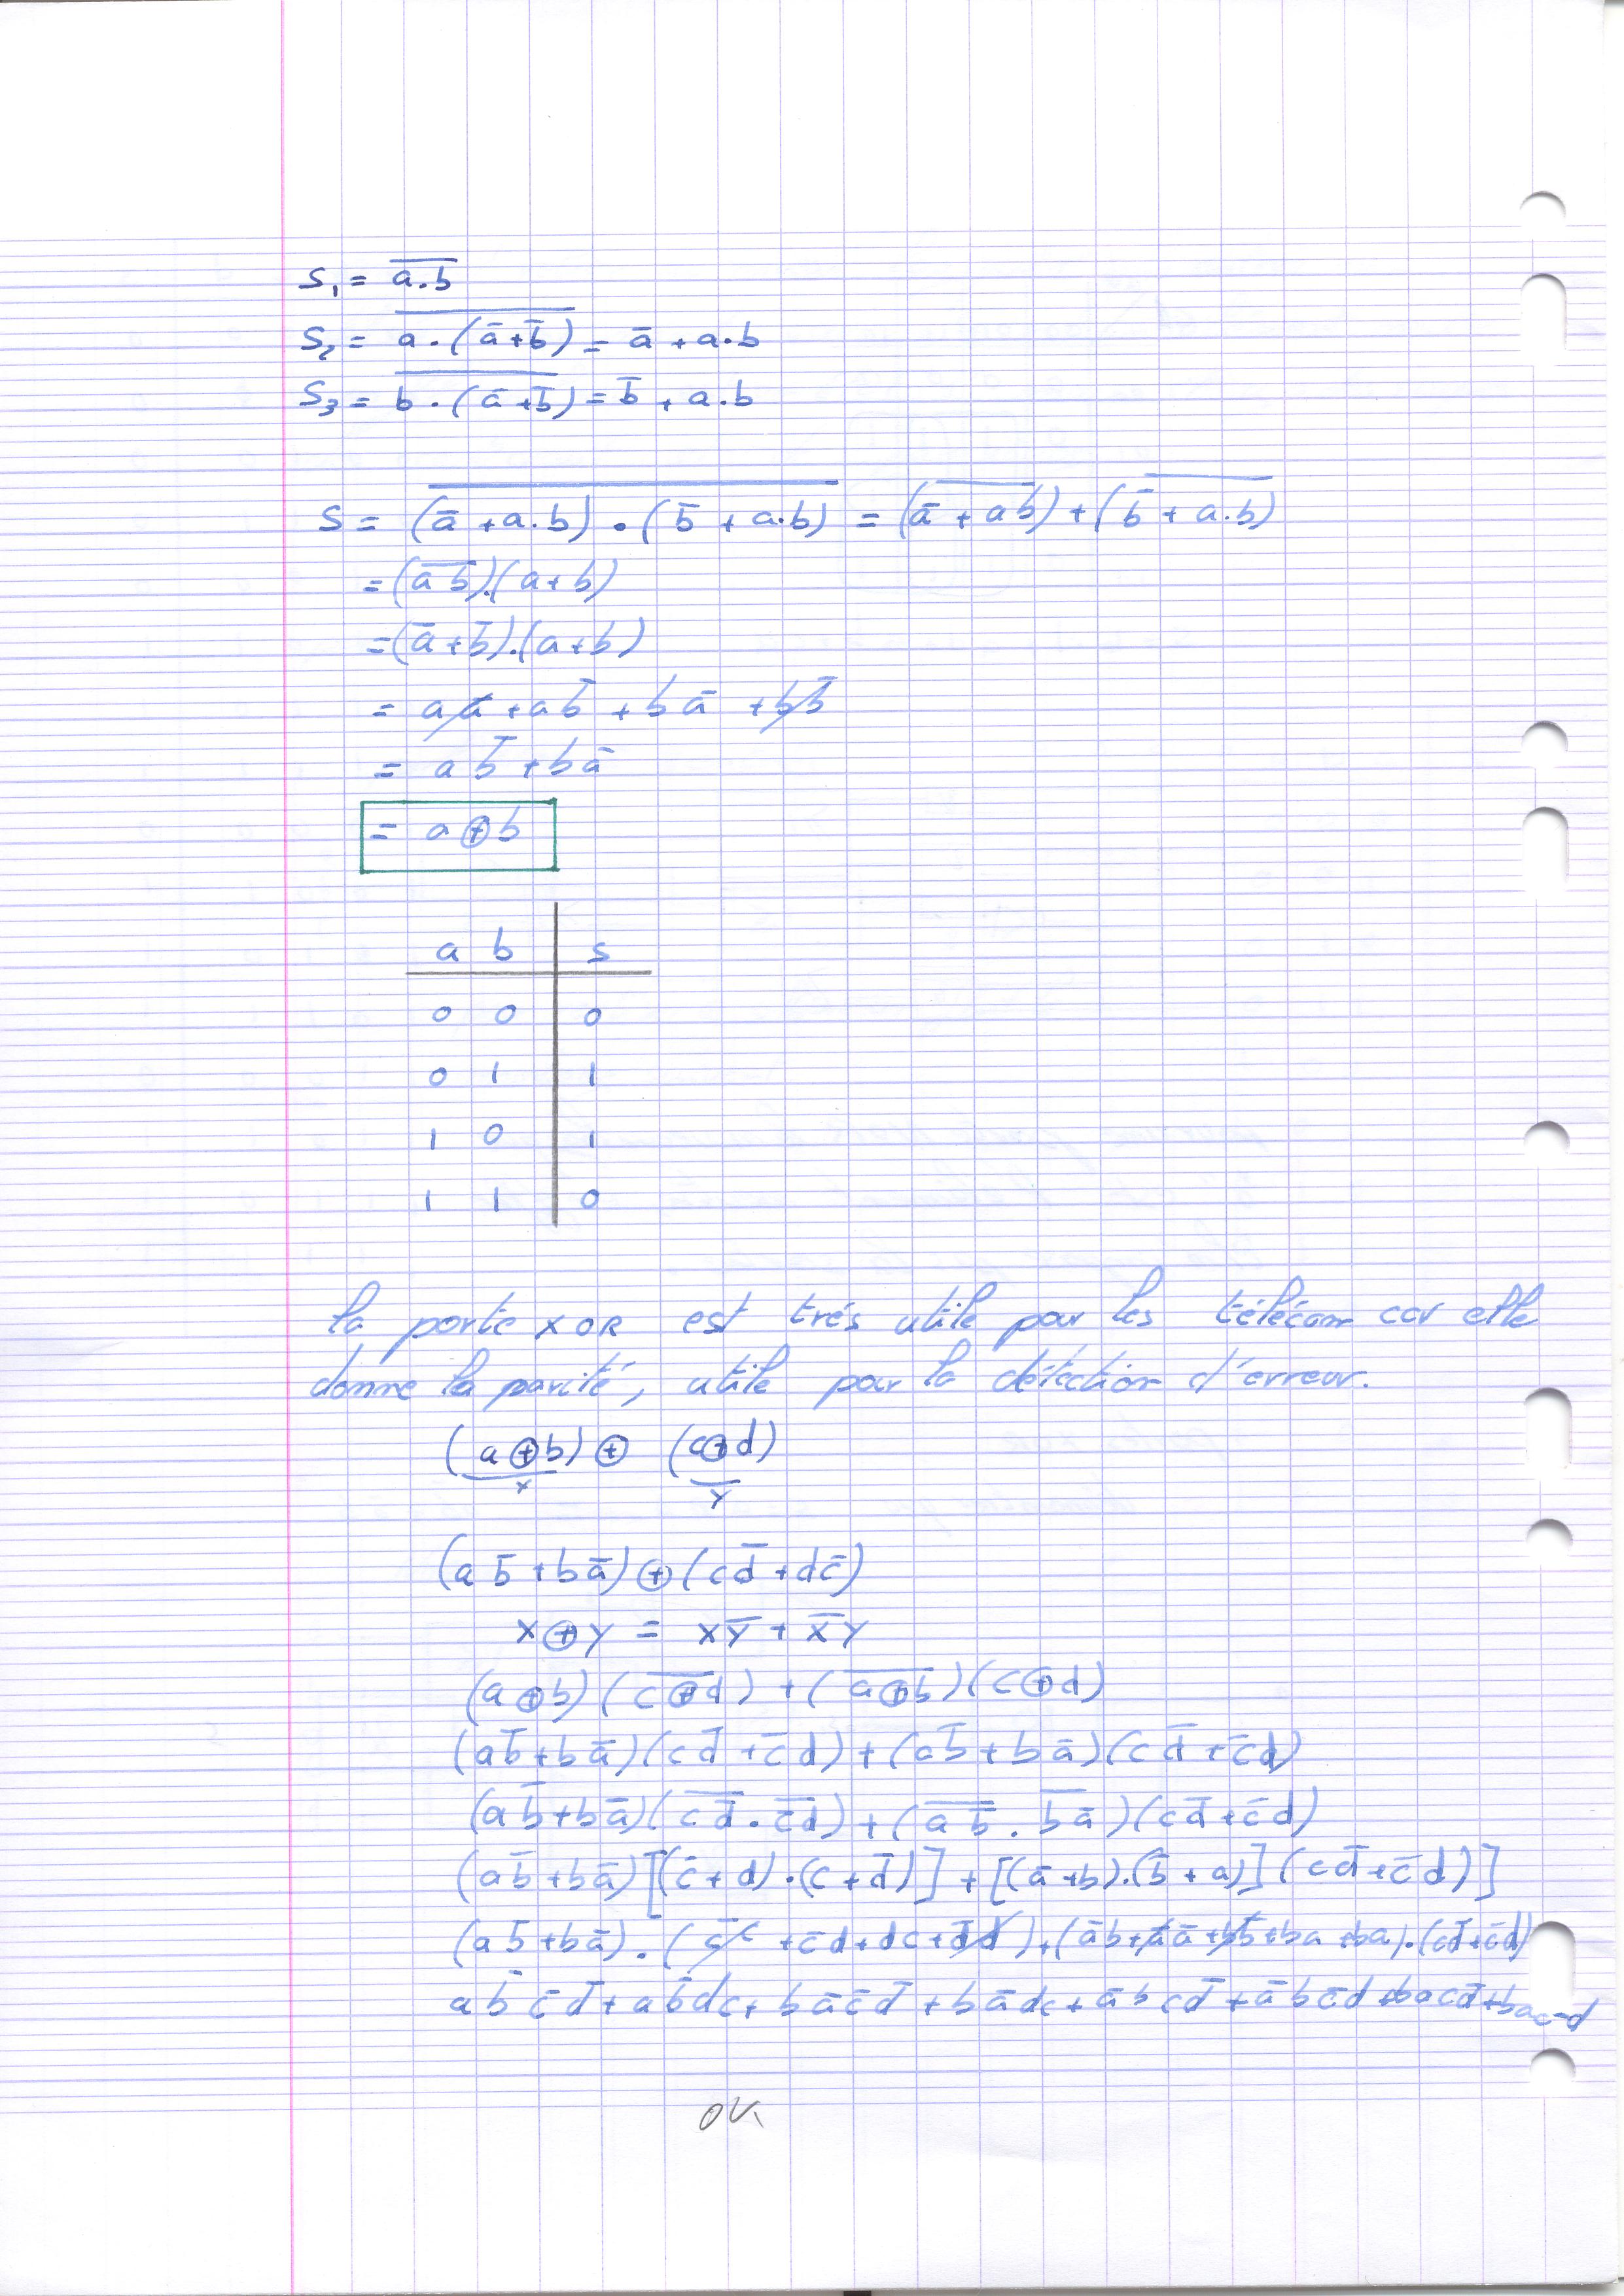 S₁ = \overline{a.b}
S₂ = \overline{a.(ā+b̄)} = ā + a.b
S₃ = \overline{b.(ā+b̄)} = b̄ + a.b
S = \overline{(ā + a.b).(b̄ + a.b)} = \overline{(ā + ab)} + \overline{(b̄ + a.b)}
= (\overline{ab}).(a+b)
= (ā+b̄).(a+b)
= aā + ab̄ + bā + bb̄
= ab̄ + bā
= a⊕b
a b s
0 0 0
0 1 1
1 0 1
1 1 0
la porte XOR est trés utile pour les télécom car elle
donne la parité, utile pour la détéction d'erreur.
(a⊕b) ⊕ (c⊕d)
x Y
(ab̄ + bā) ⊕ (cd̄ + dc̄)
x⊕y = xȳ + x̄y
(a⊕b)(\overline{c⊕d}) + (\overline{a⊕b})(c⊕d)
(ab̄+bā)(cd̄+c̄d) + (ab̄+bā)(cd̄+c̄d)
(ab̄+bā)(\overline{cd̄}.\overline{c̄d}) + (\overline{ab̄}.\overline{bā})(cd̄+c̄d)
(ab̄+bā)[(c̄+d).(c+d̄)] + [(ā+b).(b̄+a)](cd̄+c̄d)]
(ab̄+bā).(c̄c + c̄d + dc + d̄d) + (āb+aā+bb̄+ba+ba).(cd̄+c̄d)
ab̄c̄d̄ + ab̄dc + bāc̄d̄ + bādc + āb̄cd̄ + āb̄c̄d + bacd̄ + bac̄d
OK